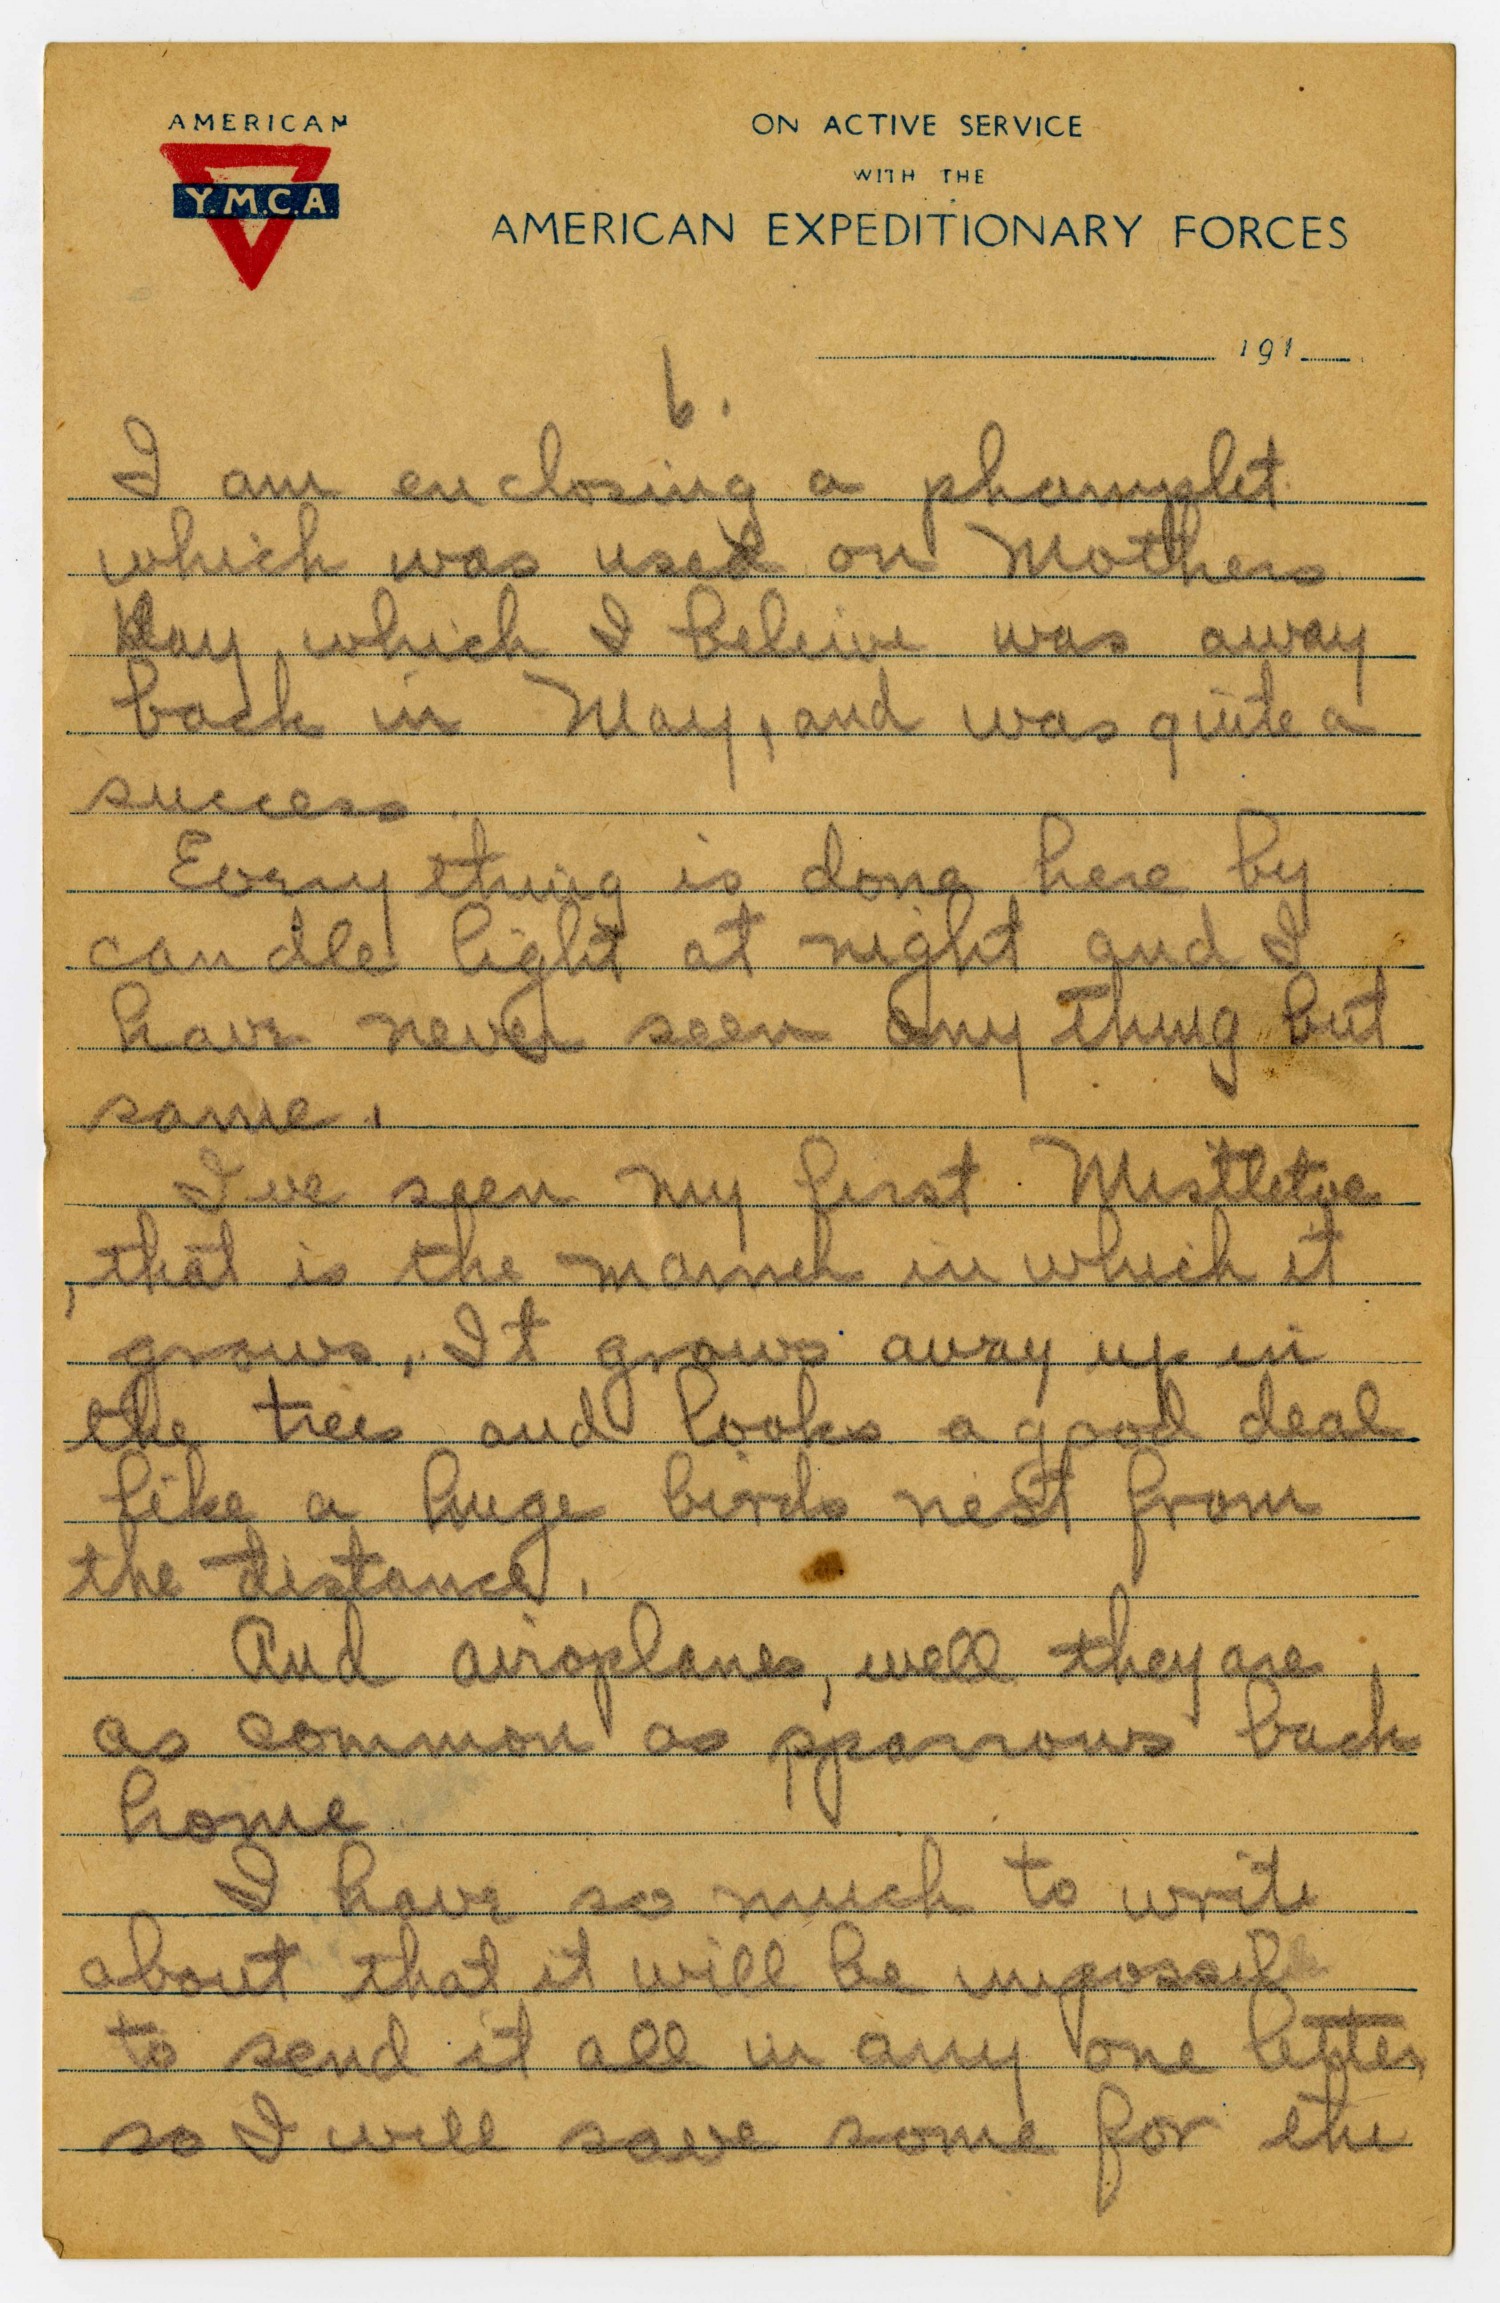 AMERICAN
Y.M.C.A.
ON ACTIVE SERVICE
WITH THE
AMERICAN EXPEDITIONARY FORCES
191
6.
I am enclosing a phamplet
which was used on Mothers
Day which I beleive was away
back in May, and was quite a
success.
Every thing is done here by
candle light at night and I
have never seen any thing but
same.
I've seen my first Mistletoe
, that is the manner in which it
grows. It grows away up in
the trees and looks a good deal
like a huge birds nest from
the distance.
And airoplanes, well they are
as common as sparrows back
home.
I have so much to write
about that it will be impossible
to send it all in any one letter,
so I will save some for the